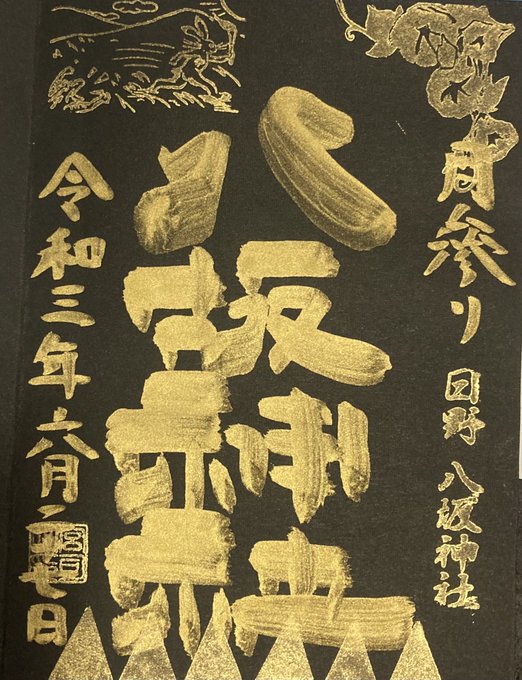 月參り 日野 八坂神社
八坂神社
令和三年六月 七日
宮司